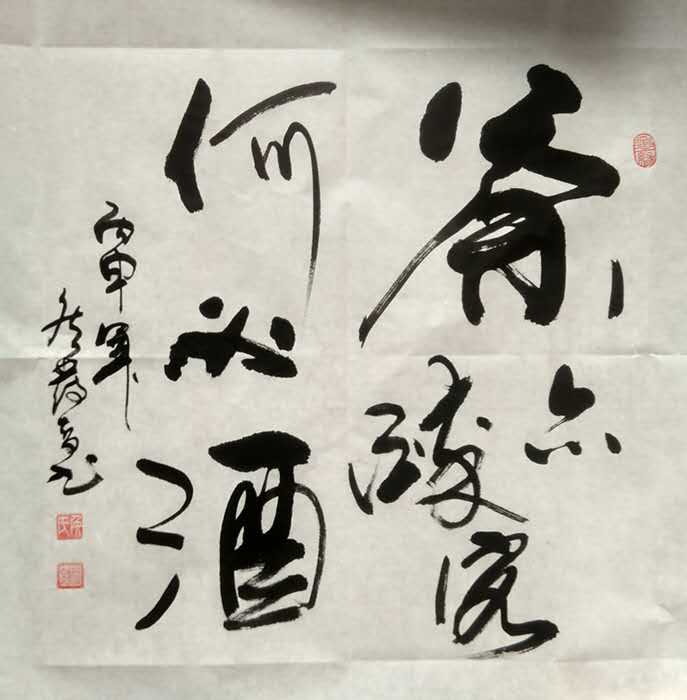 茶亦醉客
何必酒
丙申年